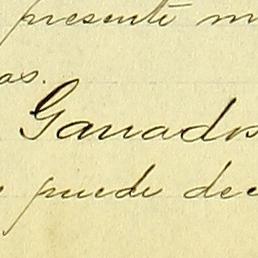 presente m
as.
Ganados
puede dec